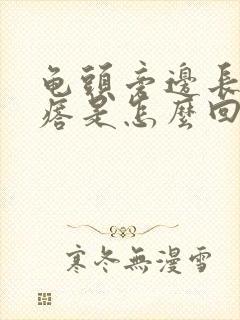 龟頭旁邊長
痞是怎麼回
寒冬無漫雪